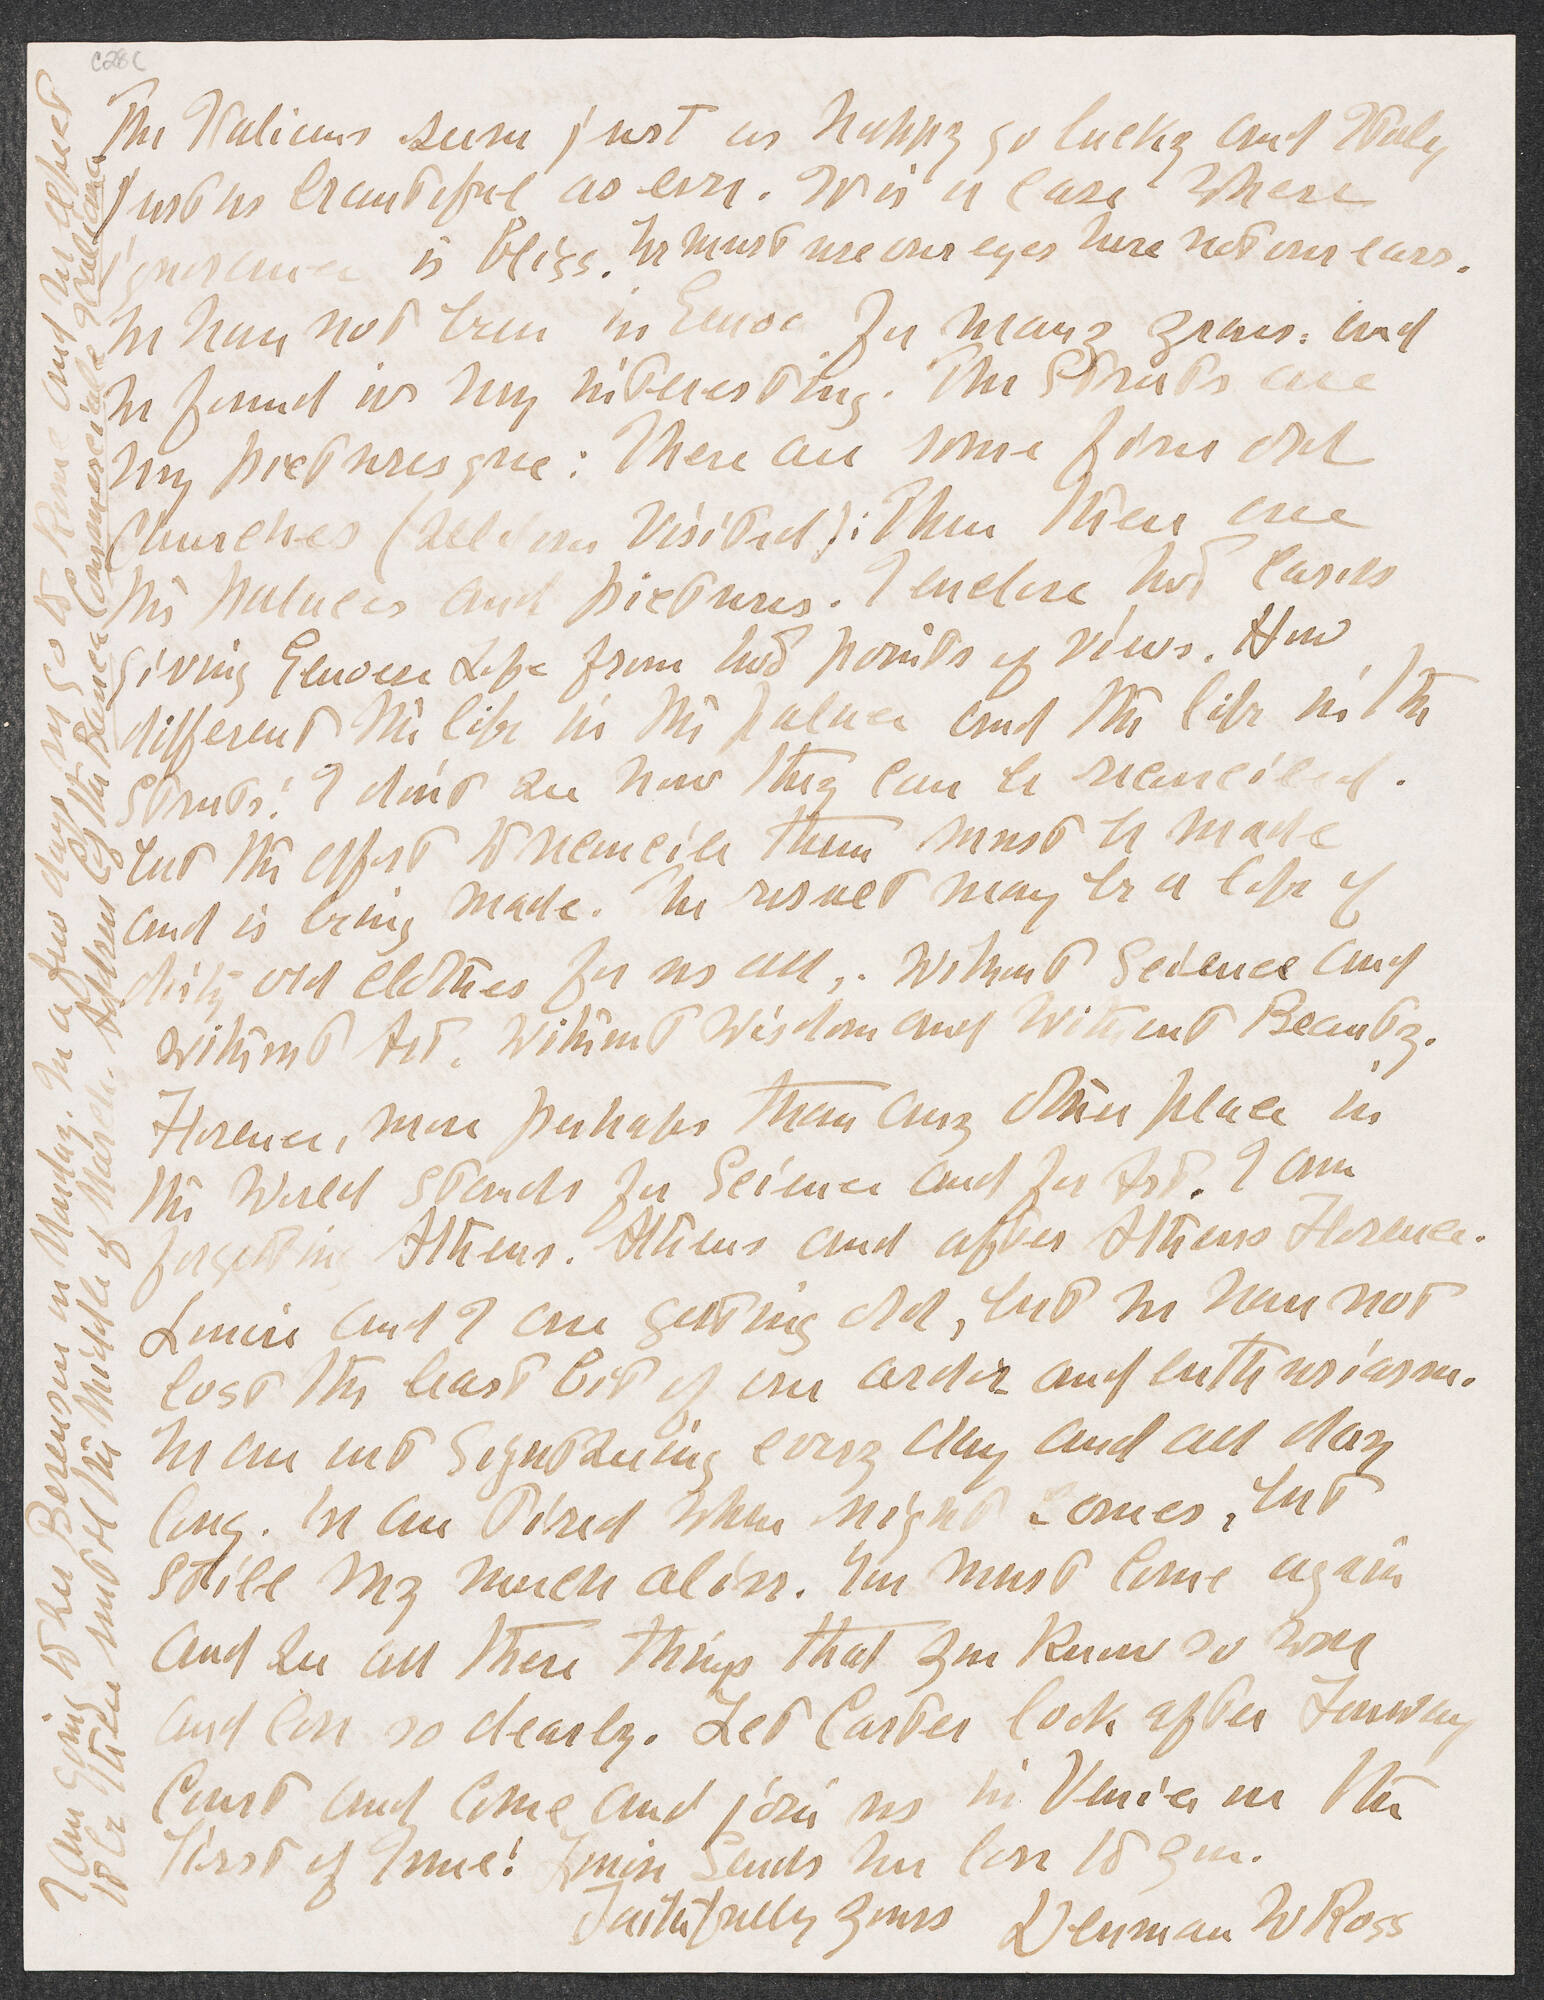 C28c
The Italians seem just as happy go lucky and Italy
just as beautiful as ever. It is a case where
ignorance is bliss. We must use our eyes here not our ears.
We have not been in Genoa for many years: and
we found it very interesting. The Streets are
very picturesque: There are some fine old
Churches (seldom visited): Then there are
the palaces and pictures. I enclose two cards
giving Genoese Life from two points of views. How
different the life in the palace and the life in the
Streets! I don't see how they can be reconciled.
but the effort to reconcile them must be made
and is being made. The result may be a life of
dirty old clothes for us all,. without Science and
without Art. Without Wisdom and Without Beauty.
Florence, more perhaps than any other place in
the World stands for Science and for Art. I am
forgetting Athens. Athens and after Athens Florence.
Louise and I are getting old, but we have not
lost the least bit of our ardor and enthusiasm.
We are out sightseeing every day and all day
long. We are tired when night comes, but
still very much alive. You must come again
and see all these things that you know so well
and love so dearly. Let Carter look after Fenway
Court and come and join us in Venice on the
first of June! Louise sends her love to you.
Faithfully yours Denman W Ross
I am going to see Berenson on Monday. In a few days we go to Rome and we expect
to be there until the middle of March. Address C/o the Banca Commerciale Italiana